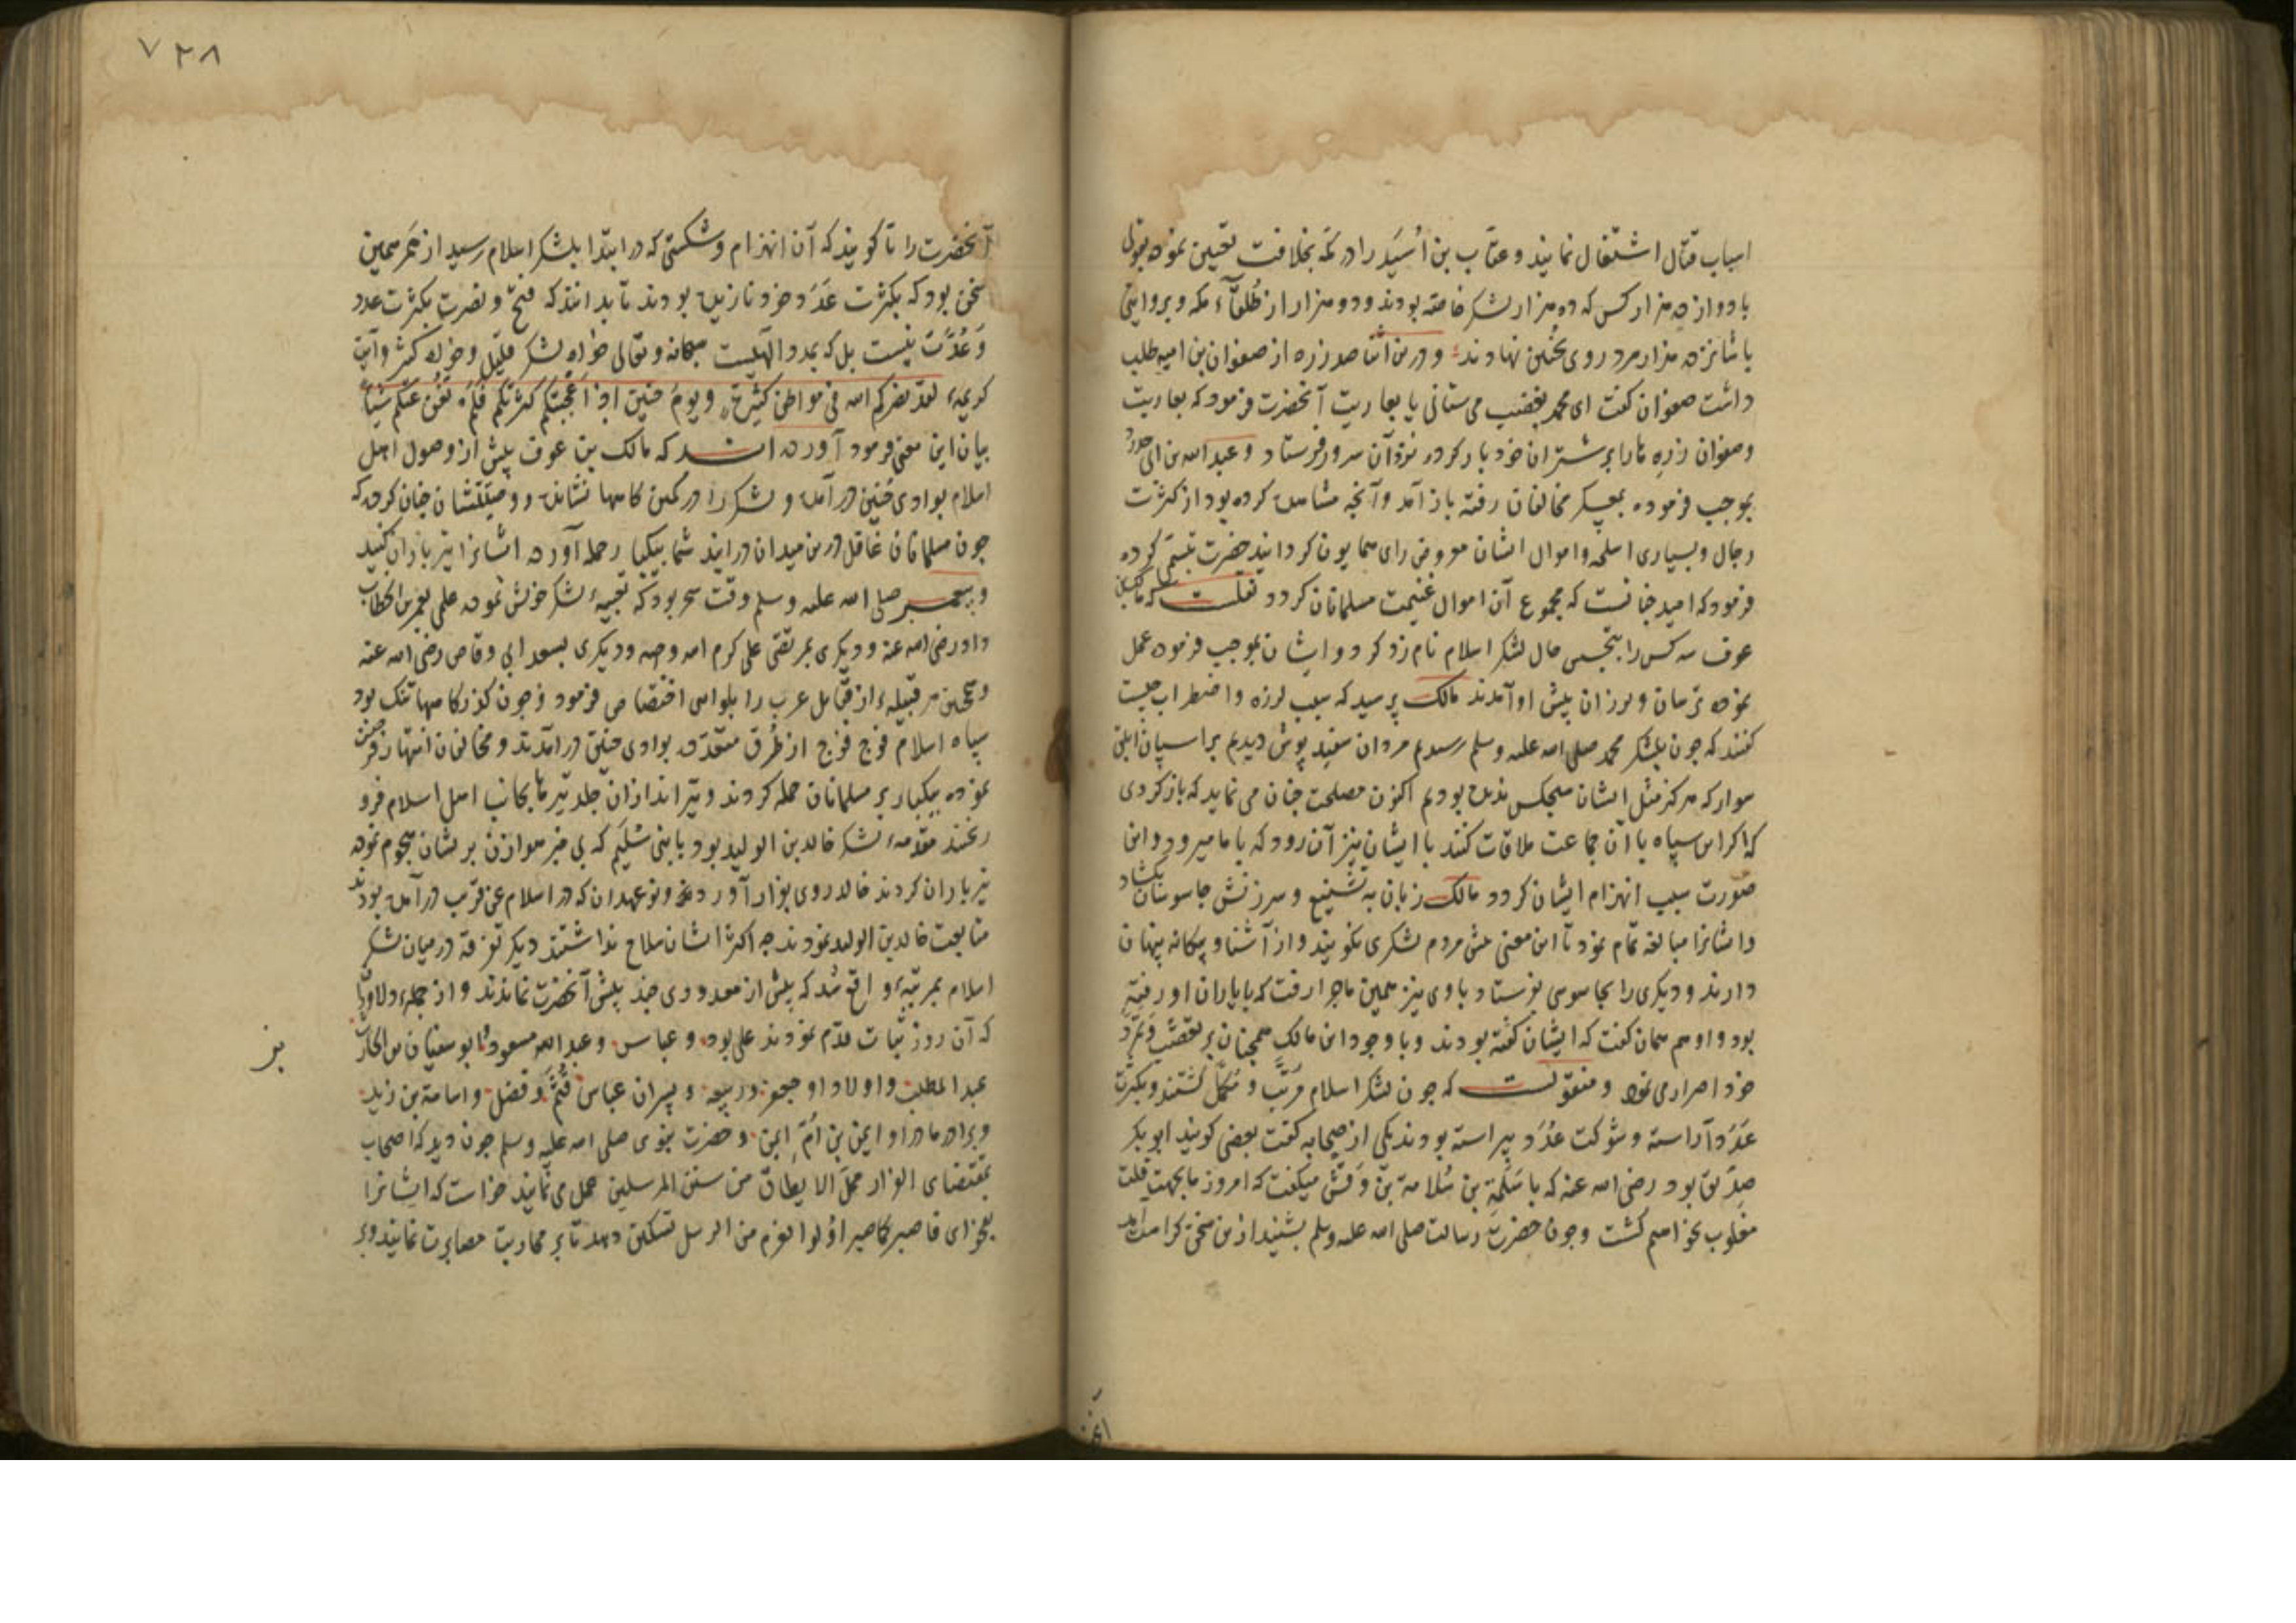 اسباب قتال اشتغال نمایند و عتاب بن اُسَید را در مکه بخلافت تعیین نموده بقولی
با دوازده هزار کس که ده هزار لشکر خاصّه بودند و دو هزار از طُلَقآء مکه و بروایتی
با شانزده هزار مرد روی بحُنَین نهادند و درین اثنا صد زره از صفوان بن امیه طلب
داشت صفوان کفت ای محمد بغصب می ستانی یا بعاریت آنحضرت فرمود که بعاریت
وصفوان زره هارا بر شتران خود بار کرده نزد آن سرور فرستاد و عبد الله بن ابی حدرد
بموجب فرموده بمعسکر مخالفان رفته باز آمد و آنچه مشاهده کرده بود از کثرت
رجال و بسیاری اسلحه و اموال ایشان معروض رای همایون کردانید حضرت تبسّمی کرده
فرمود که امید چنانست که مجموع آن اموال غنیمت مسلمانان کردد نقلست که مالک بن
عوف سه کس را بتجسس حال لشکر اسلام نام زد کرد و ایشان بموجب فرموده عمل
نموده ترسان و لرزان پیش او آمدند مالک پرسید که سبب لرزه و اضطراب چیست
کفتند که چون بلشکر محمد صلی الله علیه وسلم رسیدیم مردان سفید پوش دیدیم بر اسپان ابلق
سوار که هرکز مثل ایشان هیچکس ندیده بودیم اکنون مصلحت چنان می نماید که باز کردی
که اکر این سپاه با آن جماعت ملاقات کنند با ایشان نیز آن رود که با ما میرود و این
صورت سبب انهزام ایشان کردد مالک زبان به تشنیع و سرزنش جاسوسان بکشاد
و ایشانرا مبالغه تمام نمود تا این معنی پیش مردم لشکری نکویند و از آشنا و بیکانه پنهان
دارند و دیکری را بجاسوسی فرستاد با وی نیز همین ماجرا رفت که با یاران او رفته
بود و او هم همان کفت که ایشان کفته بودند و با وجود این مالک همچنان بر تعصّب و تمرّد
خود اصرار می نمود و منقولست که چون لشکر اسلام مرتّب و مکمّل کشتند و بکثرت
عَدَد آراسته و شوکت عُدَد پیراسته بودند یکی از صحابه کفت بعضی کویند ابو بکر
صدّیق بود رضی الله عنه که با سَلَمة بن سَلامة بن وَقَش میکفت که امروز ما بجهت قلّت
مغلوب نخواهیم کشت و چون حضرت رسالت صلی الله علیه وسلم بشنید ازین سخن کراهت آمد
آنحضرت
۷۲۸
آنحضرت را تا کویند که آن انهزام و شکستی که در ابتدا بلشکر اسلام رسید از ممرّ همین
سخن بود که بکثرت عَدَد خود نازیده بودند تا بدانند که فتح و نصرت بکثرت عدد
و عُدّت نیست بل که بمدد الهیست سبحانه و تعالی خواه لشکر قلیل و خواه کثیر و آیت
کریمهٔ لقد نصرکم الله فی مواطن کثیرة و یوم حنین اذ اعجبتکم کثرتکم فلم تغن عنکم شیئاً
بیان این معنی فرمود آورده اند که مالک بن عوف پیش از وصول اهل
اسلام بوادی حُنَین در آمده و لشکر را در کمین کاهها نشانده و وصیّتشان چنان کرده که
چون مسلمانان غافل درین میدان در ایند شما بیکبار حمله آورده ایشانرا تیرباران کنید
و پیغمبر صلی الله علیه وسلم وقت سحر بود که تعبیهٔ لشکر خویش نموده علمی بعمر بن الخطاب
داد رضی الله عنه و دیکری بمرتضی علی کرم الله وجهه و دیکری بسعد ابی وقاص رضی الله عنه
و همچنین هر قبیلهٔ از قبایل عرب را بلوایی اختصاص فرمود و چون کذرکاهها تنک بود
سپاه اسلام فوج فوج از طُرق متعدّده بوادی حنین در آمدند و مخالفان انتهاز فرصت
نموده بیکبار بر مسلمانان حمله کردند و تیر اندازان جلد تیرها بجانب اهل اسلام فرو
ریختند مقدّمهٔ لشکر خالد بن الولید بود با بنی سُلَیم که بی خبر هوازن بر ایشان هجوم نموده
تیرباران کردند خالد روی بفرار آورد و نو عهدان که در اسلام عن قریب در آمده بودند
متابعت خالد بن الولید نمودند چه اکثر ایشان سلاح نداشتند دیکر تفرقه در میان لشکر
اسلام بمرتبهٔ واقع شد که بیش از معدودی چند پیش آنحضرت نماندند و از جملهٔ دلاوران
که آن روز ثبات قدم نمودند علی بود و عباس و عبد الله مسعود و ابو سفیان بن الحارث
عبد المطلب و اولاد او جعفر و ربیعه و پسران عباس قُثَم و فضل و اسامة بن زید
و برادر مادر او ایمن بن اُمّ ایمن و حضرت نبوی صلی الله علیه وسلم چون دید که اصحاب
بمقتضای الفرار ممّا لا یُطاق من سنن المرسلین عمل می نمایند خواست که ایشانرا
بفحوای فاصبر کما صبر اولوا العزم من الرسل تسکین دهد تا بر محاربت مصابرت نمایند و بر